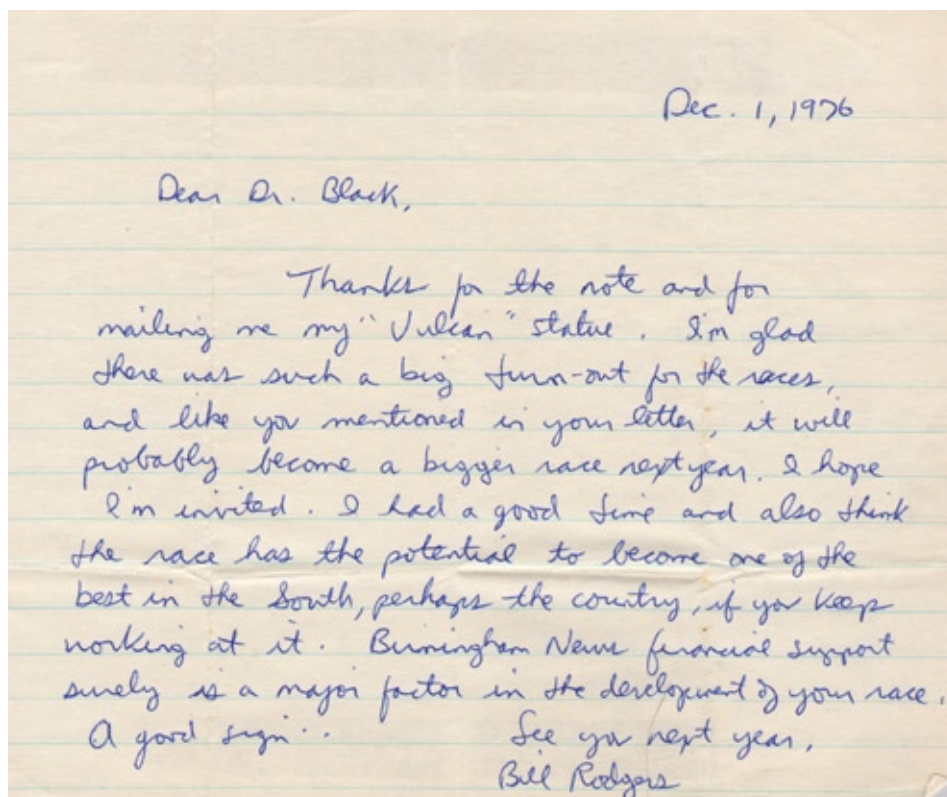 Dec. 1, 1976
Dear Dr. Black,
Thanks for the note and for
mailing me my "Vulcan" statue. I'm glad
there was such a big turn-out for the races,
and like you mentioned in your letter, it will
probably become a bigger race next year. I hope
I'm invited. I had a good time and also think
the race has the potential to become one of the
best in the South, perhaps the country, if you keep
working at it. Birmingham News financial support
surely is a major factor in the development of your race.
A good sign..
See you next year,
Bill Rodgers